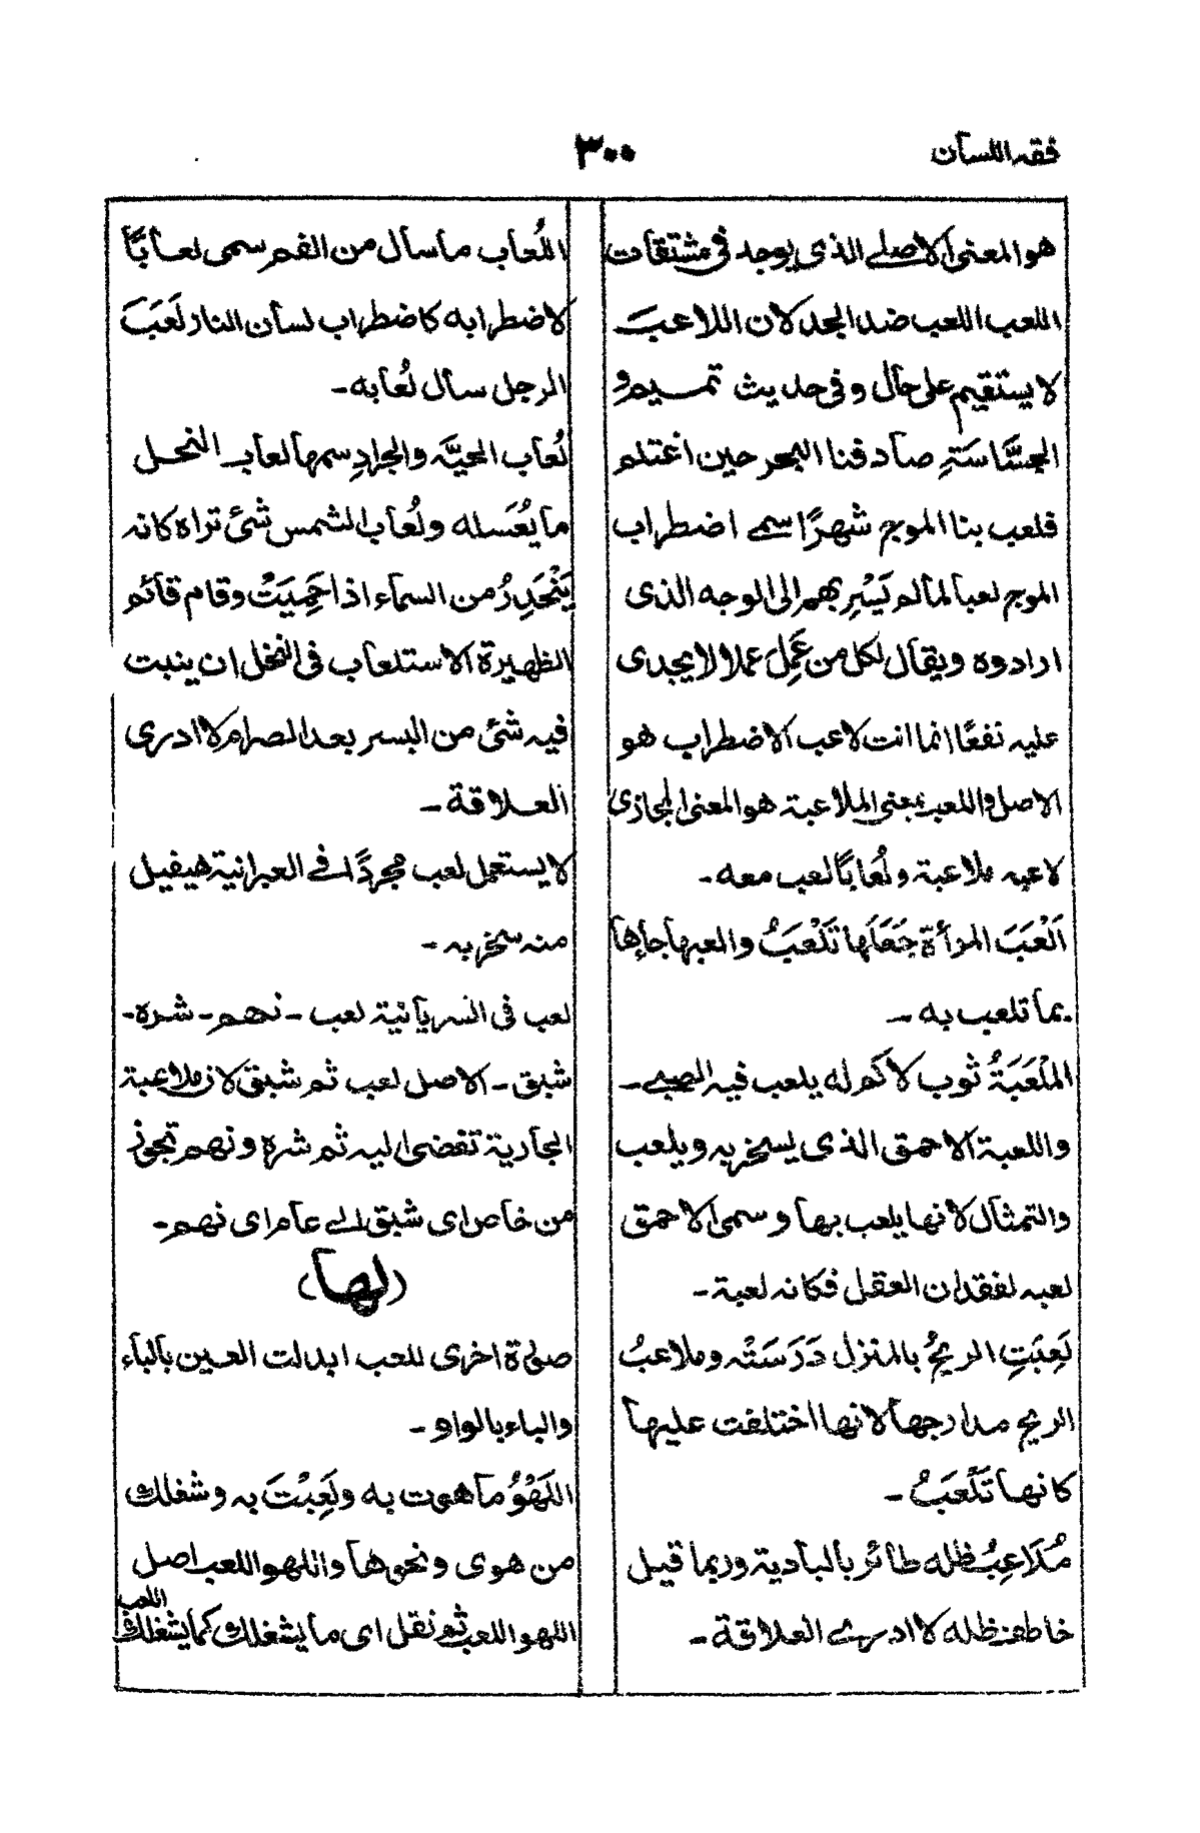 فقه اللسان
٣٠٠
هو المعنى الاصلى الذى يوجد فى مشتقات
اللعب اللعب ضد الجد لان اللاعبَ
لا يستقيم على حال وفى حديث تميم و
الجسَّاسَةِ صادفنا البحر حين اغتلم
فلعب بنا الموج شهرًا سمى اضطراب
الموج لعبا لما لم يَسْرِ بهم الى الوجه الذى
ارادوه ويقال لكل من عَمِلَ عملا لا يجدى
عليه نفعًا انما انت لاعب الاضطراب هو
الاصل واللعب بمعنى الملاعبة هو المعنى المجازى
لاعبه ملاعبة ولُعابًا لعب معه ـ
اَلْعَبَ المرأة جَعَلَها تَلْعَبُ والعبها جاءها
بما تلعب به ـ
المَلْعَبَةُ ثوب لا كم له يلعب فيه الصبى ـ
واللعبة الاحمق الذى يسخر به ويلعب
والتمثال لانها يلعب بها وسمى الاحمق
لعبه لفقدان العقل فكانه لعبة ـ
لَعِبَتِ الريحُ بالمنزل دَرَسَتْه وملاعبُ
الريح مدارجها لانها اختلفت عليها
كانها تَلْعَبُ ـ
مُلاعِبُ ظله طائر بالبادية وربما قيل
خاطف ظله لا ادرى العلاقة ـ
اللُعاب ما سال من الفم سمى لعابًا
لاضطرابه كاضطراب لسان النار لَعَبَ
الرجل سال لُعابه ـ
لُعاب الحيَّه والجرادِ سمها لعاب النحل
ما يُعَسله ولُعاب الشمس شئ تراه كانه
يَنْحَدِرُ من السماء اذا حَمِيَتْ وقام قائم
الظهيرة الاستلعاب فى النخل ان ينبت
فيه شئ من البسر بعد الصرام لا ادرى
العلاقة ـ
لا يستعمل لعب مجردًا فى العبرانية هيفيل
منه سخر به ـ
لعب فى السريانية لعب ـ نهم ـ شره ـ
شبق ـ الاصل لعب ثم شبق لان ملاعبة
الجارية تفضى اليه ثم شره ونهم تجوز
من خاص اى شبق الى عام اى نهم ـ
(لها)
صلوة اخرى للعب ابدلت العين بالهاء
والباء بالواو ـ
اللَهْوُ ما هوت به ولَعِبْتَ به وشغلك
من هوى ونحوها واللهو اللعب اصل
اللهو اللعب ثم نقل اى ما يشغلك كما يشغلك اللعب